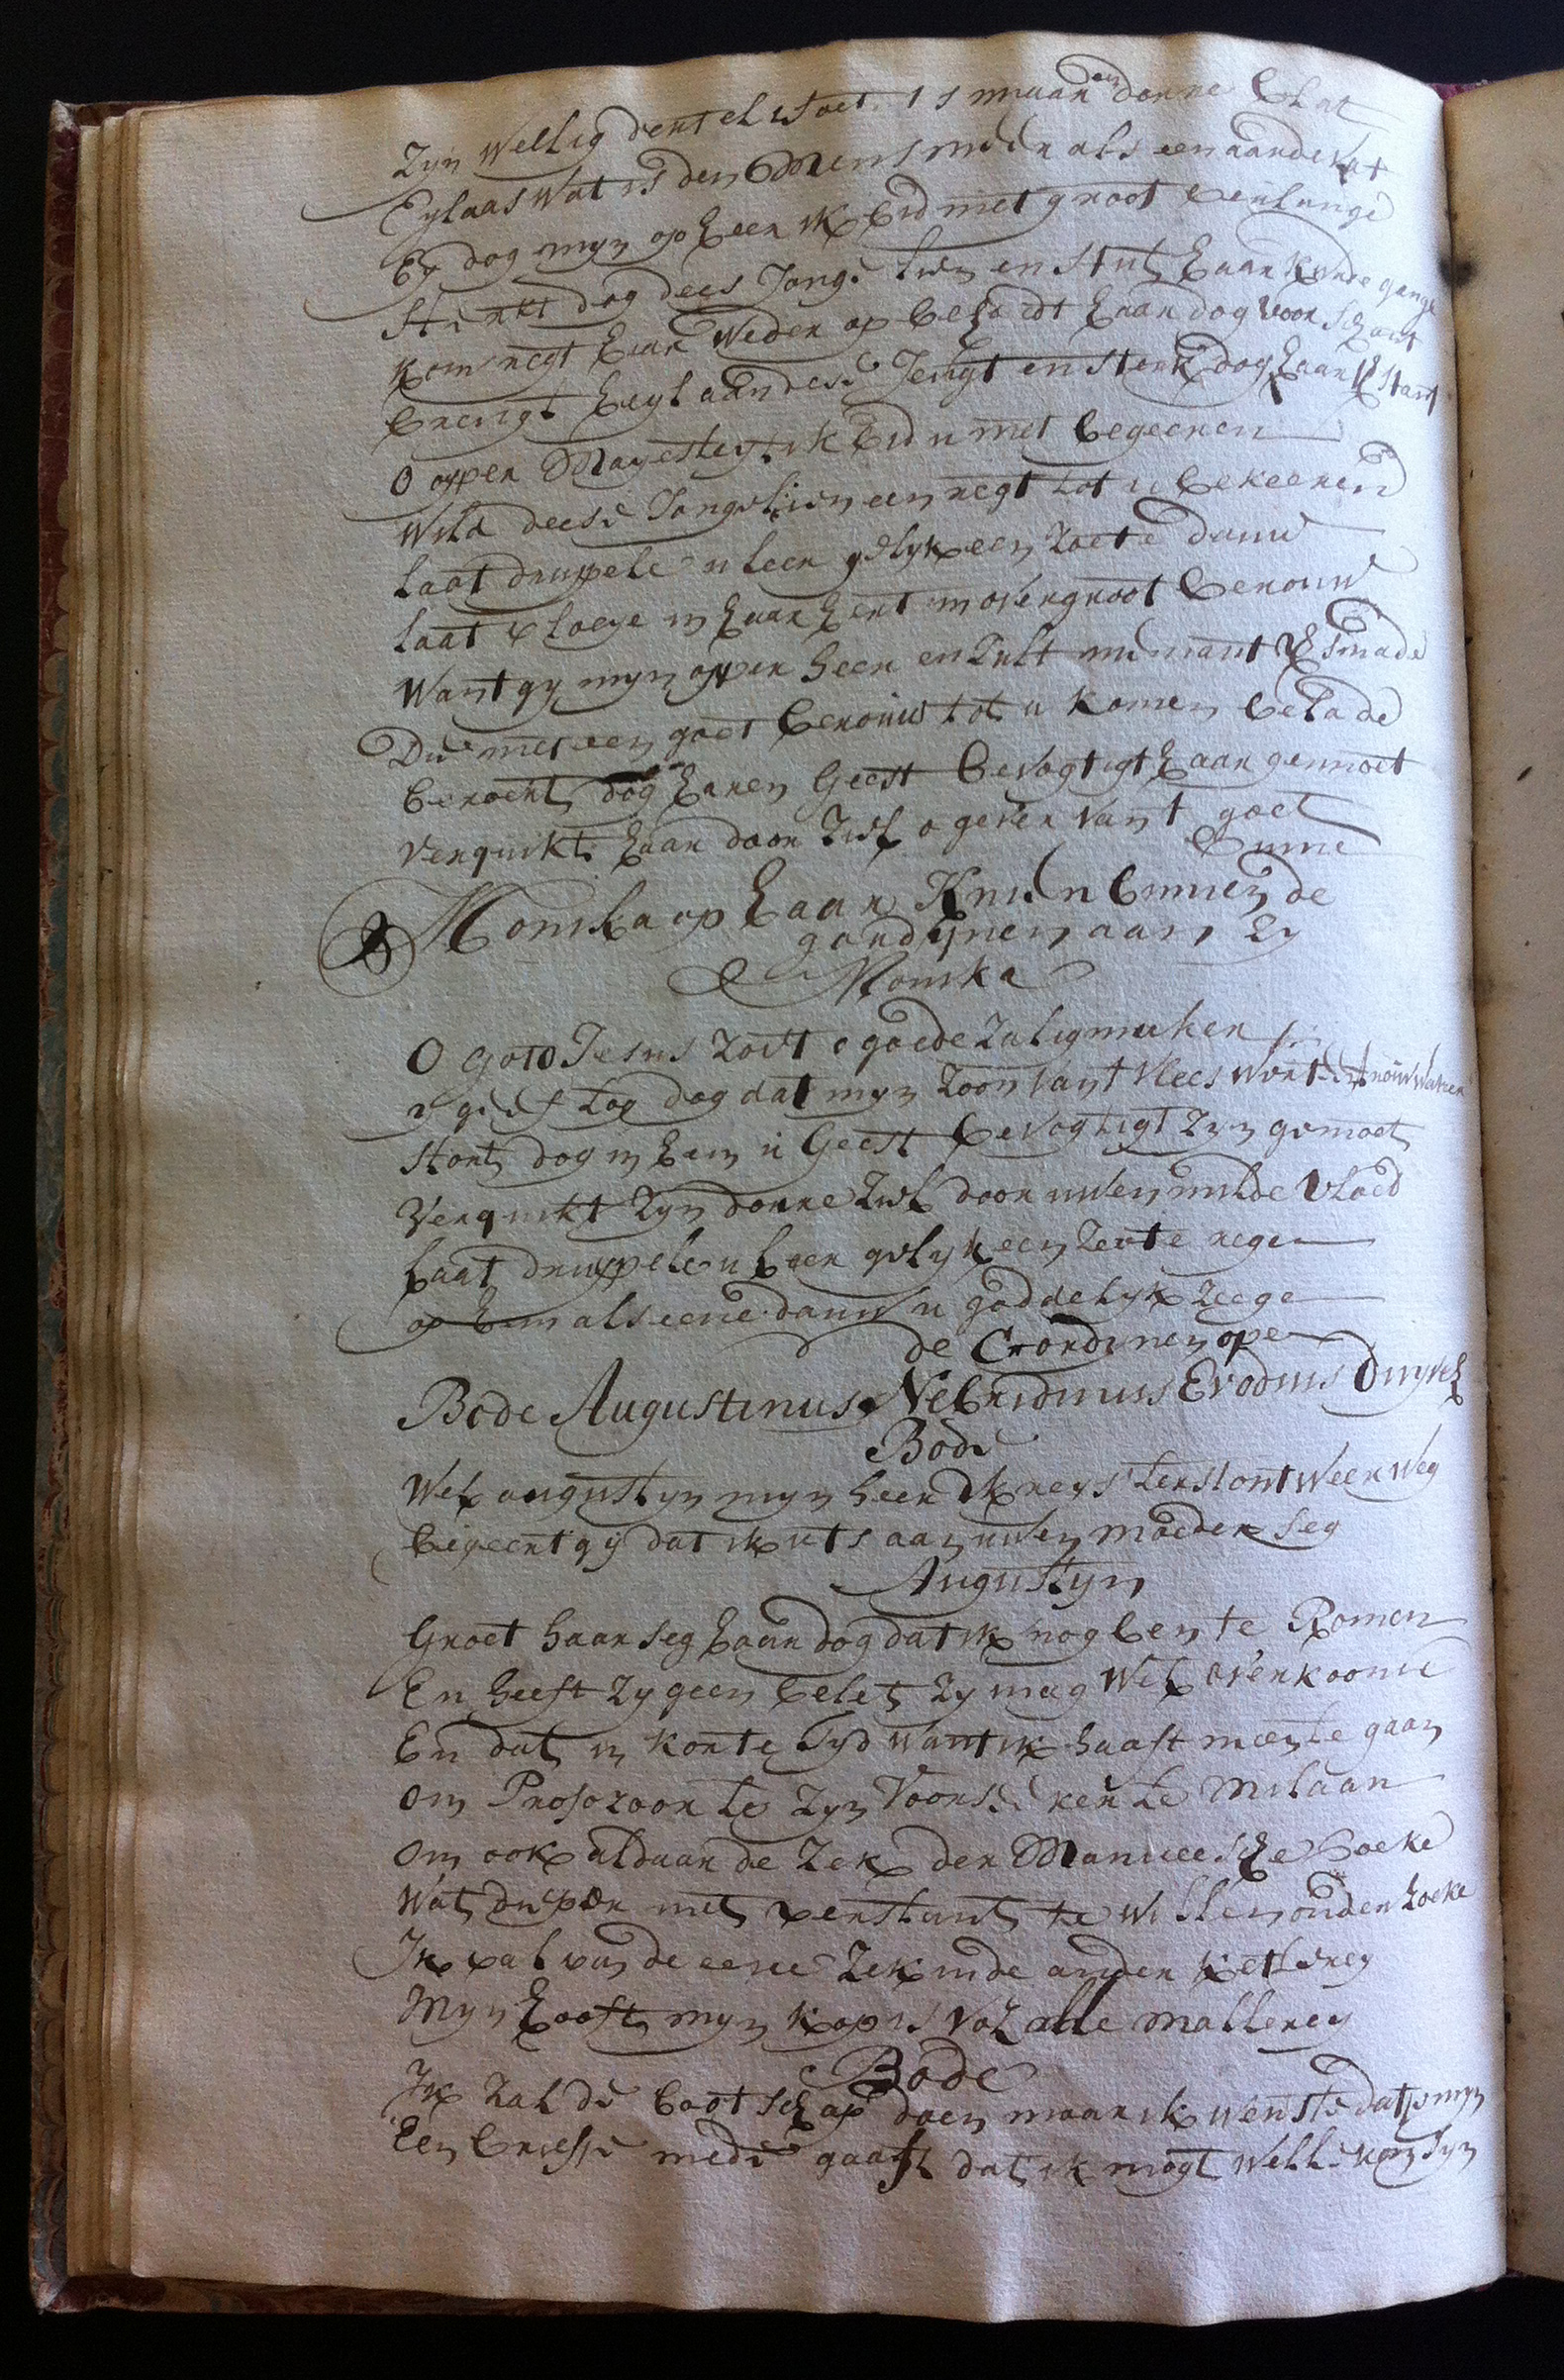 Zijn wellig dertel voet is maar een dorre blat
Eylaas wat is den Mens meer als een aarde vat
Ey dog myn opheer ik bid met groot verlange
Sterkt dog dees Jonge lien en stut haar kunde gange
kom regt haar weder op behoedt haar dog voor schant
brengt heyl aan dese Jeugt en sterk dog haar verstant
O opper Mayesteyt ik bid u met begeeren
Wild deese Jongelien een regt tot u bekeeren
laat druppele u leer gelyk een zoete dauw
laat vloeye in haar hert in overgroot berouw
Want gy myn opper heer en zult niemant versmade
Die met een goet berouw tot u komen belade
beroert dog haren Geest bevogtigt haar gemoet
verquikt haar door ziel o gever van t goet
binne
Monika op haar Knien binnen de
gordynen aan zy
Monika
O God Jesus zoet o goede zaligmaker
geef tog dog dat myn zoon van t vlees wort
stort dog in hem u Geest bevogtigt zyn gemoet
Verquikt zyn dorre ziel door uwen milde vloed
laat druppele u leer gelyk een zoete rege
op hem als eene dauw u goddelyk zege
de Gordinen ope
Bode Augustinus Nebridius Evodius Duyvel
Bode
Wel augustyn myn heer Ik reys terstont weer weg
begeert gy dat ik iets aan uwen moeder seg
Augustyn
Groet haar seg haar dog dat ik nog ben te Romen
En heeft zy geen belet zy mag wel overkoome
En dat in korte tyd want ik haast meen te gaan
om Profosoor te zyn voorseker te Milaan
om ook aldaar de Zek der Manicesche boeke
Wat dieper met verstant te willen onderzoeke
Ik val van de eene Zek in de ander ketterey
Myn hooft myn kop is vol alle mallerey
Bode
Ik zal de bootschap doen maar ik wenste dat je myn
Een briefje mede gaaft dat ik mogt wellekom syn